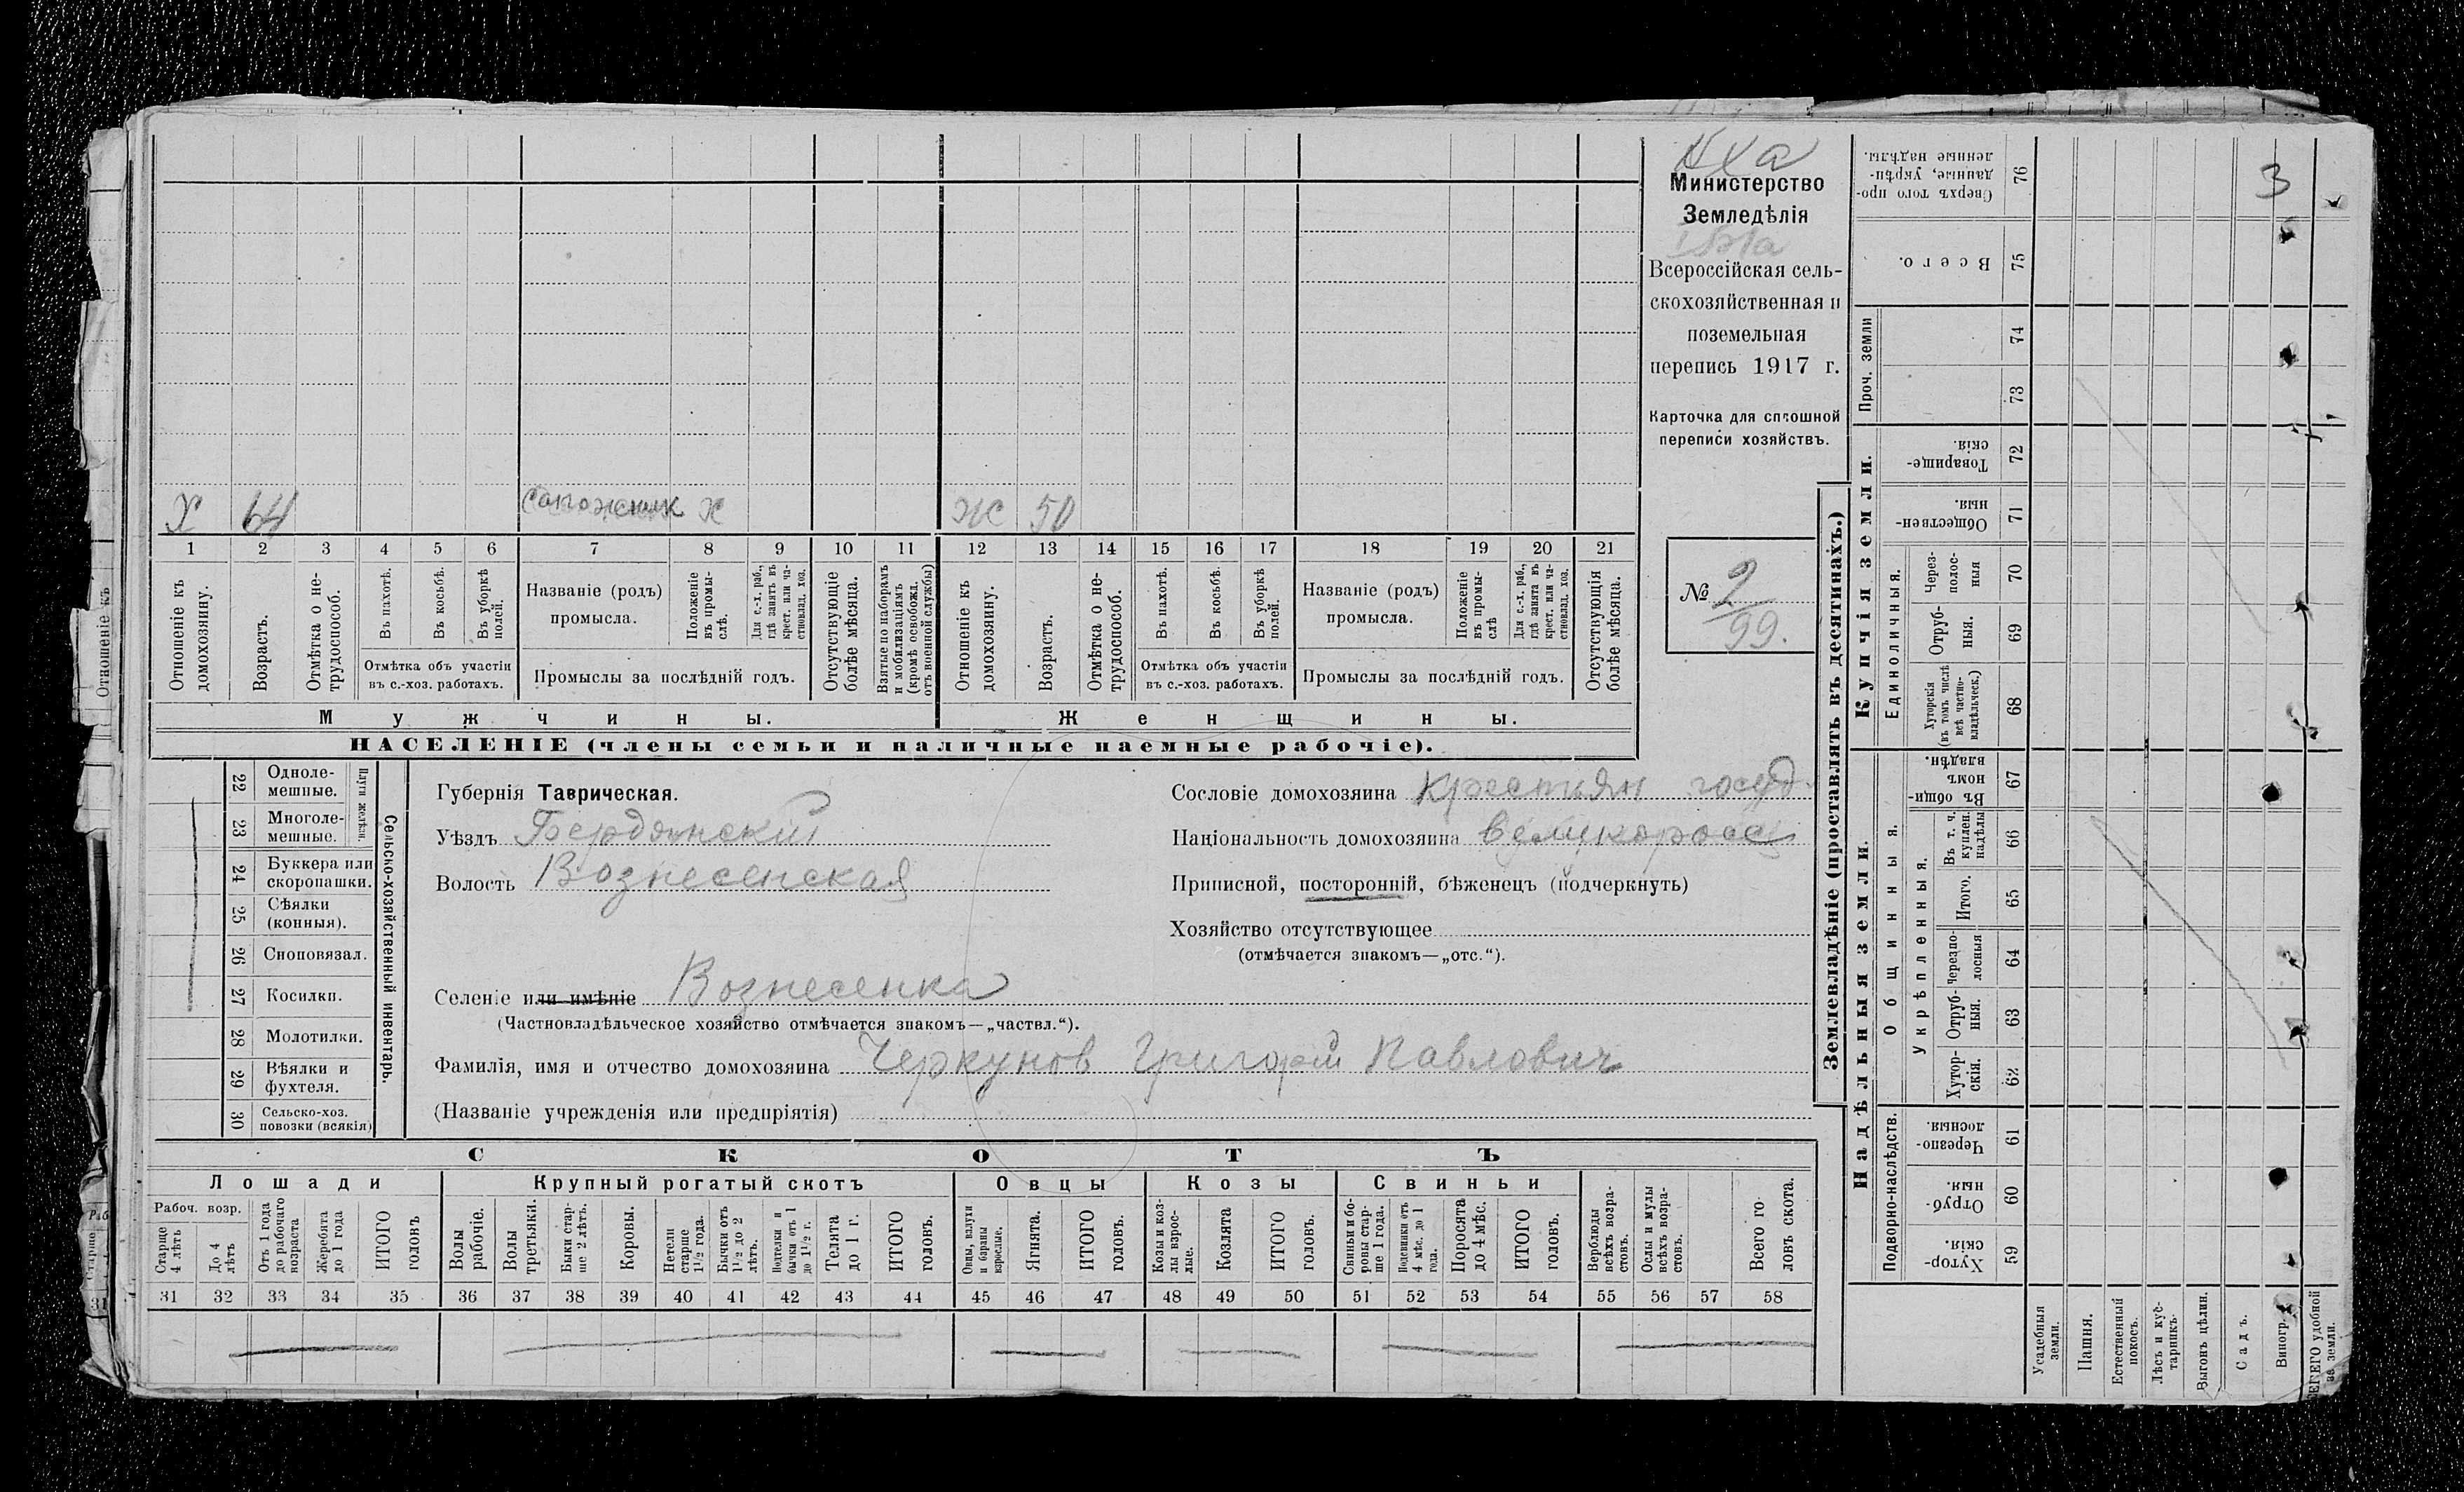 Х 64 сапожник х ж 50
1 2 3 4 5 6 7 8 9 10 11 12 13 14 15 16 17 18 19 20 21
Отношеніе къ домохозяину.
Возрастъ.
Отмѣтка о не-
трудоспособ.
Въ пахотѣ.
Въ косьбѣ.
Въ уборкѣ полей.
Отмѣтка объ участіи
въ с.-хоз. работахъ.
Названіе (родъ)
промысла.
Положеніе въ промы-
слѣ.
Для с.-х. раб., гдѣ занятъ въ крест. или ча-
стновлад. хоз.
Промыслы за послѣдній годъ.
Отсутствующіе болѣе мѣсяца.
Взятые по наборамъ и мобилизаціямъ (кромѣ освобожд. отъ военной службы)
Отношеніе къ домохозяину.
Возрастъ.
Отмѣтка о не-
трудоспособ.
Въ пахотѣ.
Въ косьбѣ.
Въ уборкѣ полей.
Отмѣтка объ участіи
въ с.-хоз. работахъ.
Названіе (родъ)
промысла.
Положеніе въ промы-
слѣ
Для с.-х. раб., гдѣ занята въ крест. или ча-
стновлад. хоз.
Промыслы за послѣдній годъ.
Отсутствующія болѣе мѣсяца.
Мужчины. Женщины.
НАСЕЛЕНІЕ (члены семьи и наличные наемные рабочіе).
Министерство
Земледѣлія
Всероссійская сель-
скохозяйственная и
поземельная
перепись 1917 г.
Карточка для сплошной
переписи хозяйствъ.
№ 2
99.
22 Одноле-
мешные.
23 Многоле-
мешные.
Плуги желѣзн.
24 Буккера или
скоропашки.
25 Сѣялки
(конныя).
26 Сноповязал.
27 Косилки.
28 Молотилки.
29 Вѣялки и
фухтеля.
30 Сельско-хоз.
повозки (всякія)
Сельско-хозяйственный инвентарь.
Губернія Таврическая.
Уѣздъ Бердянскій
Волость Вознесенская
Сословіе домохозяина крестьян госуд.
Національность домохозяина великоросс
Приписной, посторонній, бѣженецъ (подчеркнуть)
Хозяйство отсутствующее
(отмѣчается знакомъ—„отс.“).
Селеніе или имѣніе Вознесенка
(Частновладѣльческое хозяйство отмѣчается знакомъ—„частвл.“).
Фамилія, имя и отчество домохозяина Черкунов Григорій Павлович
(Названіе учрежденія или предпріятія)
СКОТЪ
Лошади Крупный рогатый скотъ Овцы Козы Свиньи
Рабоч. возр.
Старше 4 лѣтъ
До 4 лѣтъ
Отъ 1 года до рабочаго возраста
Жеребята до 1 года
ИТОГО головъ
Волы рабочіе.
Волы третьяки.
Быки стар-
ше 2 лѣтъ.
Коровы.
Нетели старше 1½ года.
Бычки отъ 1½ до 2 лѣтъ.
Подтелки и бычки отъ 1 до 1½ г.
Телята до 1 г.
ИТОГО головъ.
Овцы, валухи и бараны взрослые.
Ягнята.
ИТОГО головъ.
Козы и коз-
лы взрос-
лые.
Козлята
ИТОГО головъ.
Свиньи и бо-
ровы стар-
ше 1 года.
Подсвинки отъ 4 мѣс. до 1 года.
Поросята до 4 мѣс.
ИТОГО головъ.
Верблюды всѣхъ возра-
стовъ.
Ослы и мулы всѣхъ возра-
стовъ.
Всего го-
ловъ скота.
31 32 33 34 35 36 37 38 39 40 41 42 43 44 45 46 47 48 49 50 51 52 53 54 55 56 57 58
Землевладѣніе (проставлять въ десятинахъ.)
Купчія земли.
Надѣльныя земли.
Сверхъ того про-
данные, укрѣп-
ленные надѣлы.
76
3
Всего.
75
Проч. земли
74
73
Товарище-
скія.
72
Обществен-
ныя.
71
Единоличныя.
Через-
полос-
ныя
70
Отруб-
ныя.
69
Хуторскія (въ томъ числѣ всѣ частно-
владѣльческ.)
68
Общинныя.
Въ общин-
номъ владѣн.
67
Укрѣпленныя.
Въ т. ч. куплен. надѣлы
66
Итого.
65
Черезпо-
лосныя
64
Отруб-
ныя.
63
Хутор-
скія.
62
Подворно-наслѣдств.
Черезпо-
лосныя.
61
Отруб-
ныя.
60
Хутор-
скія.
59
Усадебныя земли.
Пашня.
Естественный покосъ.
Лѣсъ и кус-
тарникъ.
Выгонъ цѣлин.
Садъ.
Виногр.
удобной
земли.
Отношеніе къ
31